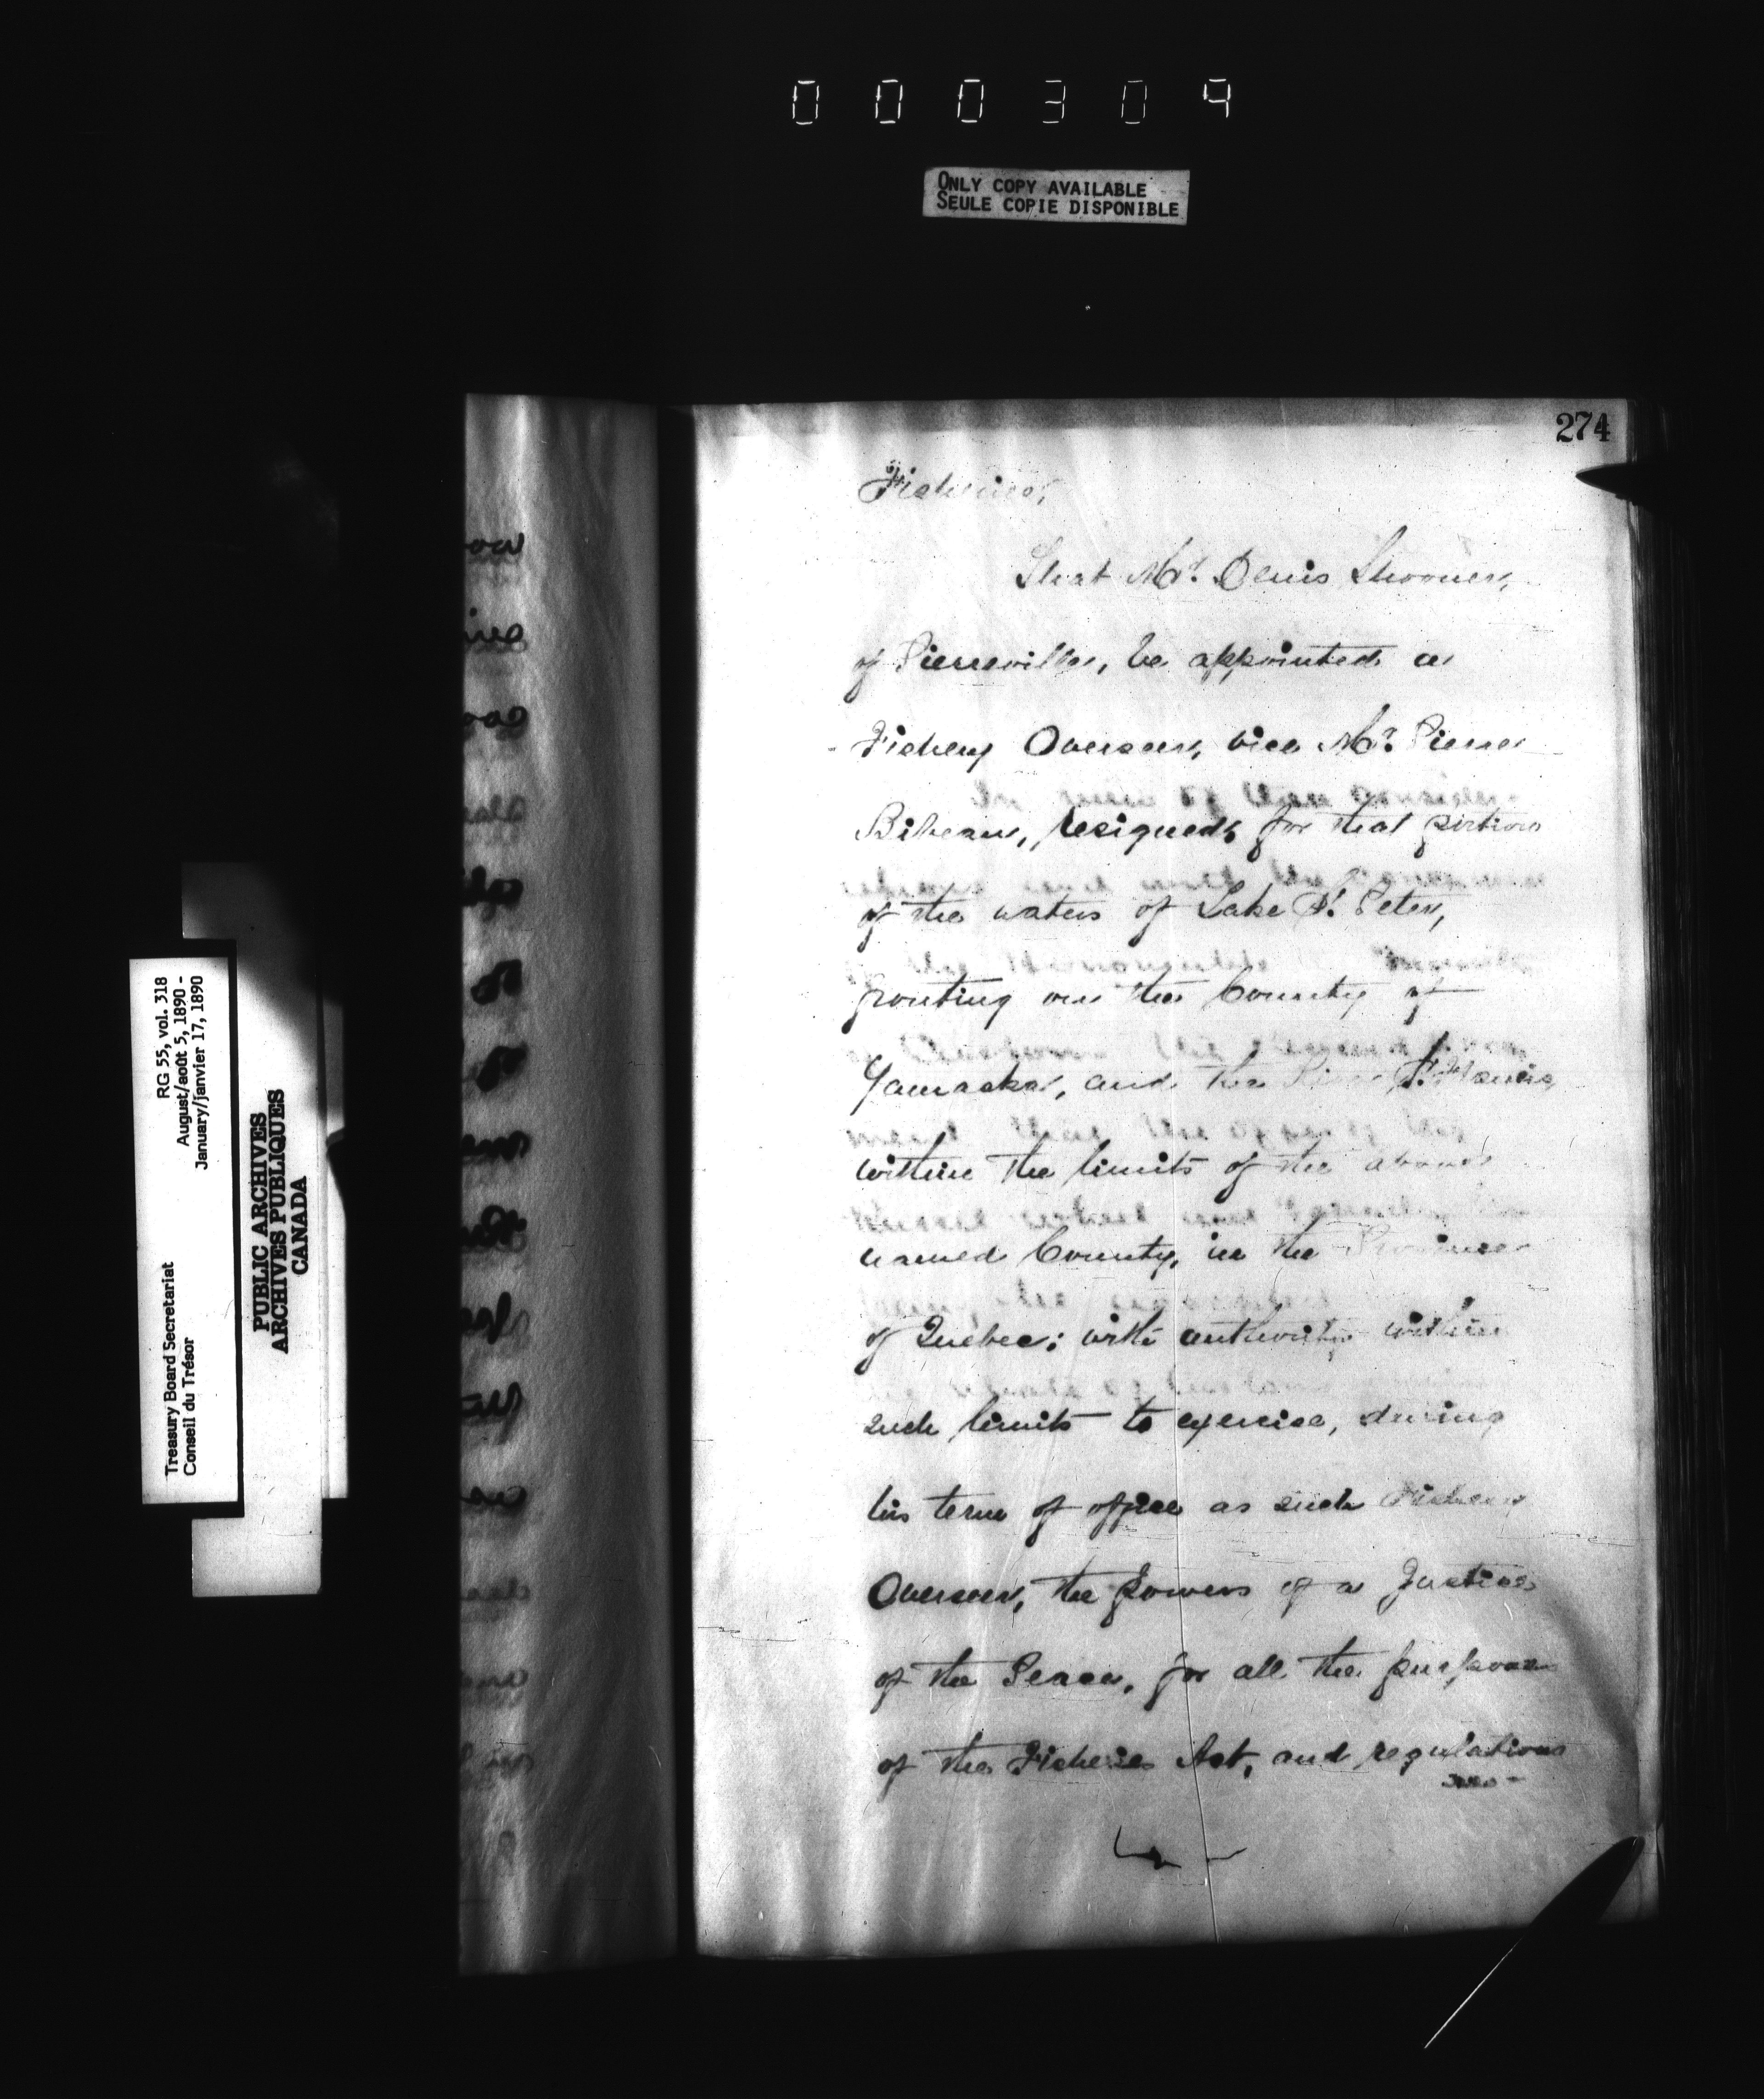 000304
ONLY COPY AVAILABLE
SEULE COPIE DISPONIBLE
274
Fisheries,
That Mr. Denis Shooner,
of Pierreville, be appointed a
Fishery Overseer, vice Mr. Pierre
Bibeau, resigned, for that portion
of the waters of Lake St. Peter,
fronting on the County of
Yamaska, and the River St. Francis,
within the limits of the above
named County, in the Province
of Quebec; with authority within
such limits to exercise, during
his term of office as such Fishery
Overseer, the powers of a Justice
of the Peace, for all the purposes
of the Fisheries Act, and regulations
RG 55, vol. 318
August/août 5, 1890 -
January/janvier 17, 1890
Treasury Board Secretariat
Conseil du Trésor
PUBLIC ARCHIVES
ARCHIVES PUBLIQUES
CANADA